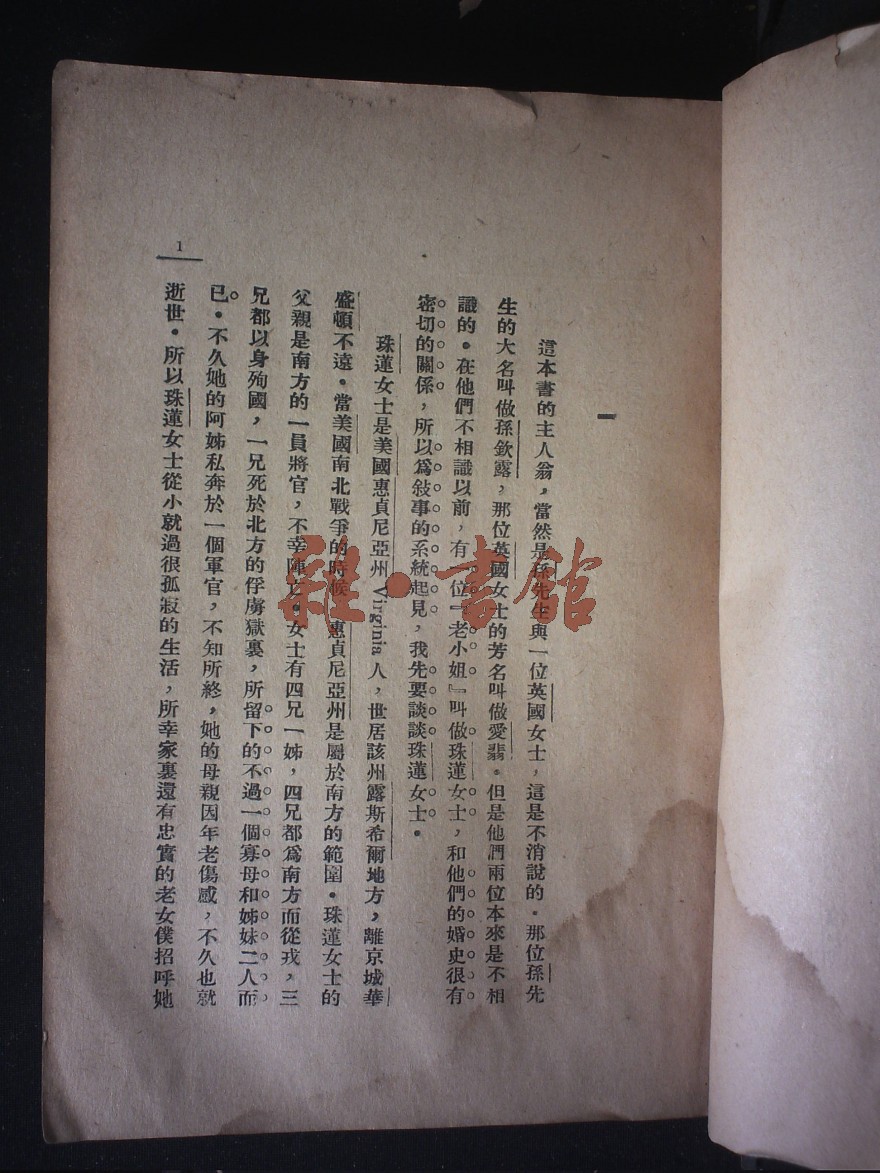 一
這本書的主人翁，當然是孫先生與一位英國女士，這是不消說的。那位孫先
生的大名叫做孫欽露，那位英國女士的芳名叫做愛翡。但是他們兩位本來是不相
識的。在他們不相識以前，有一位『老小姐』叫做珠蓮女士，和他們的婚史很有
密切的關係，所以爲敍事的系統起見，我先要談談珠蓮女士。
珠蓮女士是美國惠貞尼亞州 Virginia 人，世居該州露斯希爾地方，離京城華
盛頓不遠。當美國南北戰爭的時候，惠貞尼亞州是屬於南方的範圍。珠蓮女士的
父親是南方的一員將官，不幸陣亡。女士有四兄一姊，四兄都爲南方而從戎，三
兄都以身殉國，一兄死於北方的俘虜獄裏，所留下的不過一個寡母和姊妹二人而
已。不久她的阿姊私奔於一個軍官，不知所終，她的母親因年老傷感，不久也就
逝世。所以珠蓮女士從小就過很孤寂的生活，所幸家裏還有忠實的老女僕招呼她
1
雜·書館